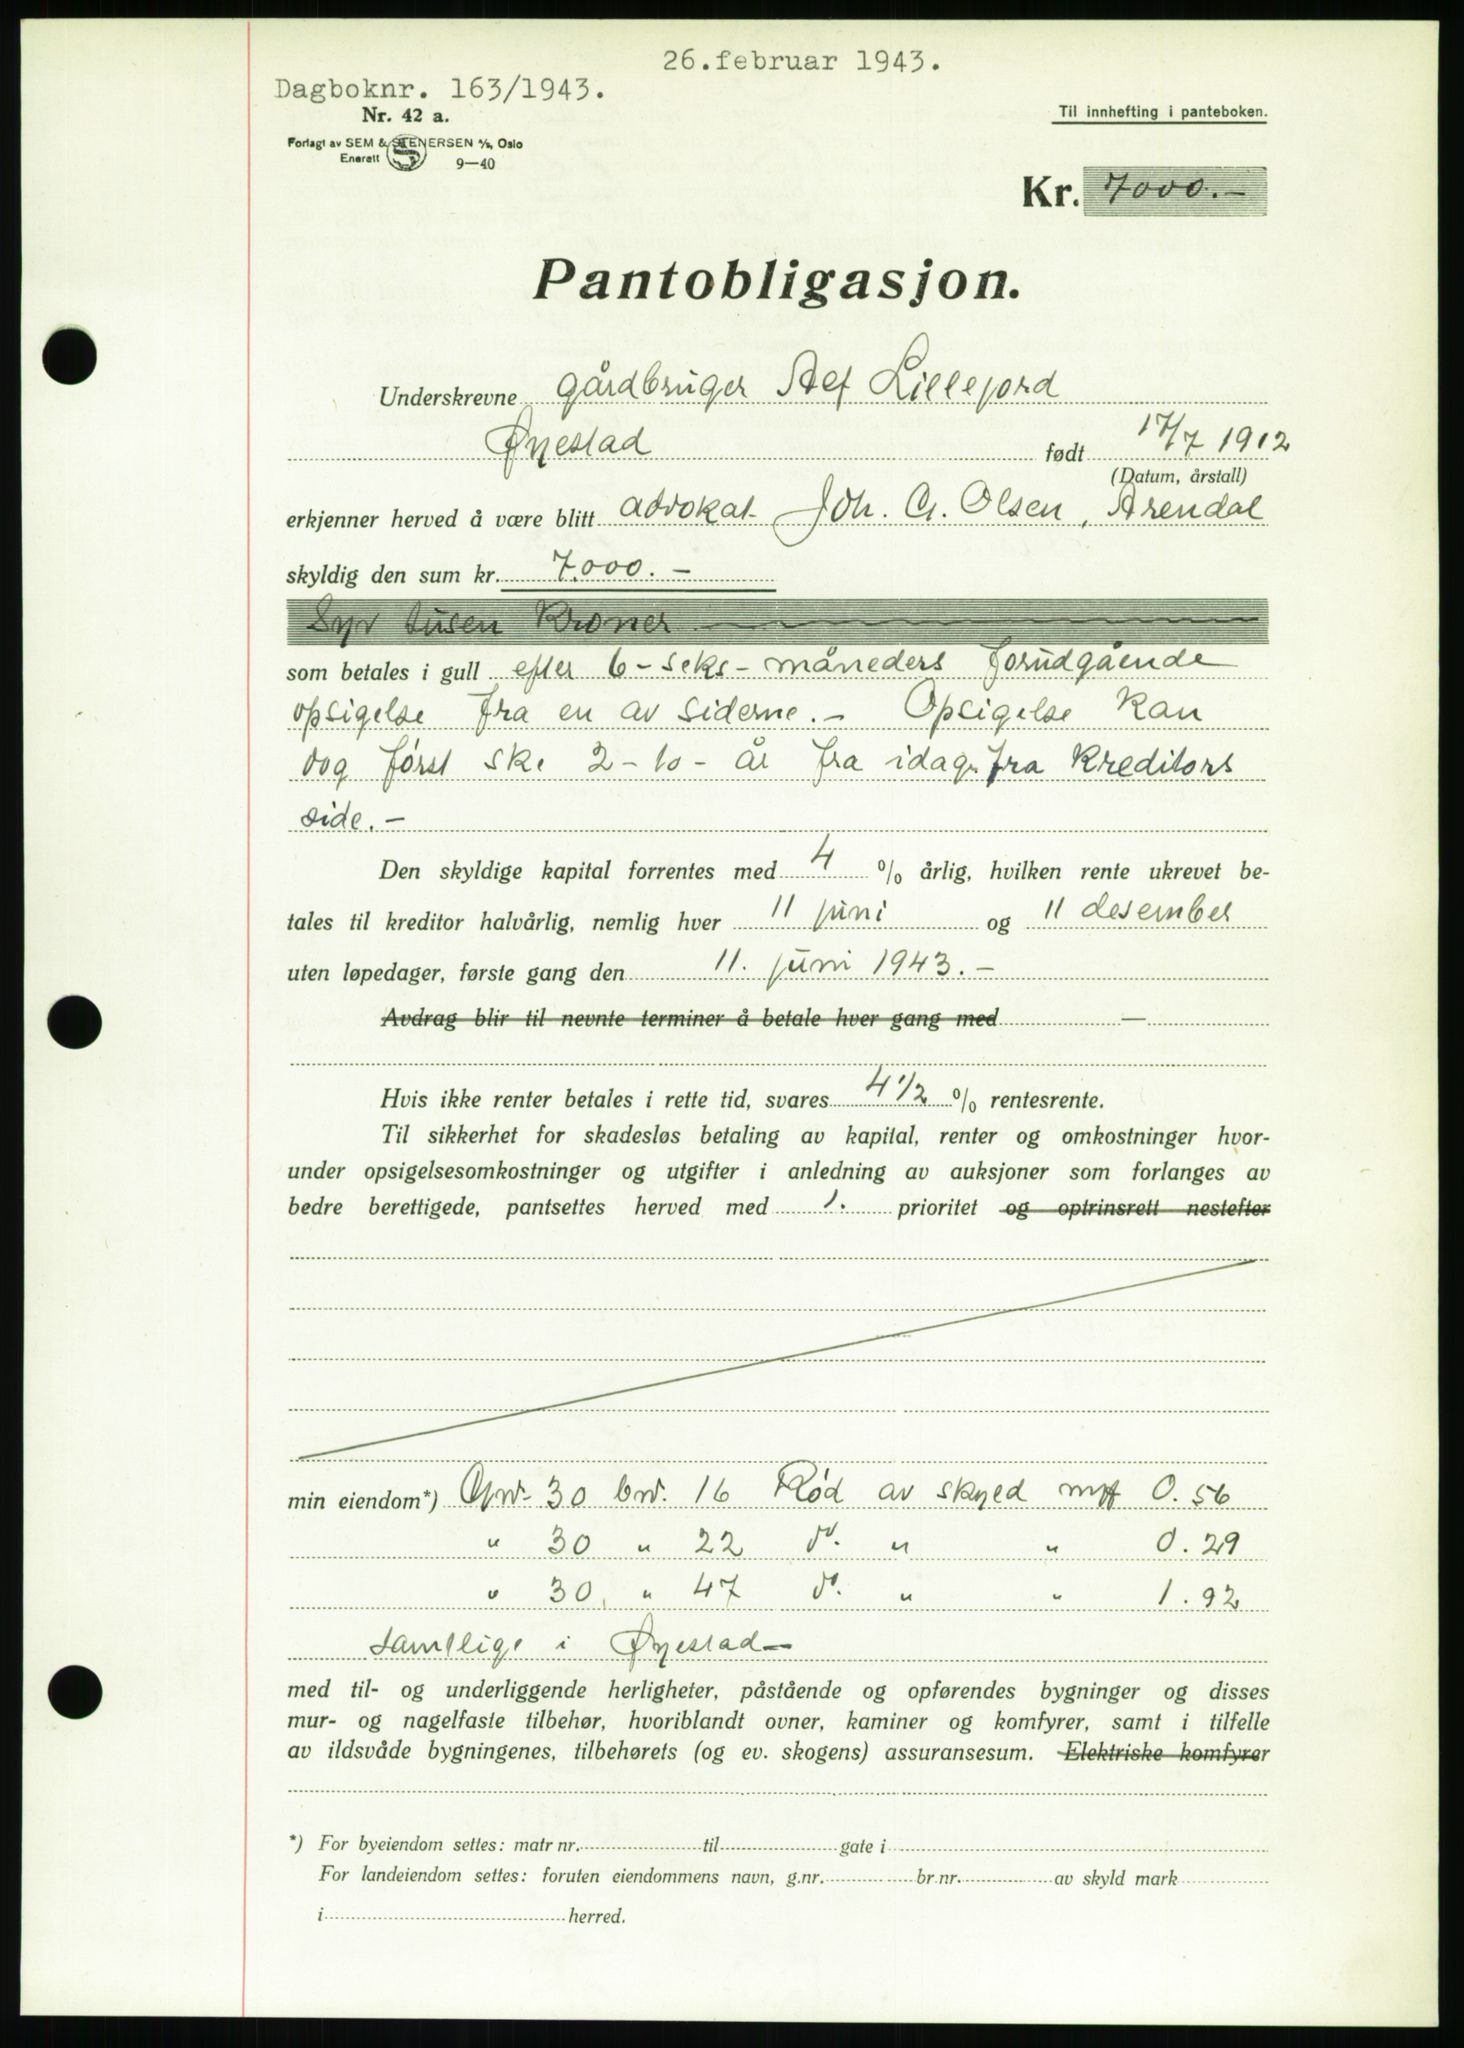 26.februar 1943.
Dagboknr. 163/1943.
Nr. 42 a.
Til innhefting i panteboken.
Forlagt av SEM & STENERSEN A/S, Oslo
Enerett 9—40
Kr. 7000.-
Pantobligasjon.
Underskrevne gårdbruger Alf Lillejord
Øyestad født 17/7 1912
(Datum, årstall)
erkjenner herved å være blitt advokat Joh. G. Olsen, Arendal
skyldig den sum kr. 7.000.-
Syv tusen Kroner
som betales i gull efter 6-seks-måneders forudgående
opsigelse fra en av siderne.- Opsigelse kan
dog først ske 2-to-år fra idag fra kreditors
side.-
Den skyldige kapital forrentes med 4 % årlig, hvilken rente ukrevet be-
tales til kreditor halvårlig, nemlig hver 11 juni og 11 desember
uten løpedager, første gang den 11. juni 1943.-
Avdrag blir til nevnte terminer å betale hver gang med —
Hvis ikke renter betales i rette tid, svares 4 1/2 % rentesrente.
Til sikkerhet for skadesløs betaling av kapital, renter og omkostninger hvor-
under opsigelsesomkostninger og utgifter i anledning av auksjoner som forlanges av
bedre berettigede, pantsettes herved med 1. prioritet og optrinsrett nestefter
min eiendom*) Gnr. 30 bnr. 16 Rød av skyld mrk 0.56
" 30 " 22 do. " " 0.29
" 30 " 47 do. " " 1.92
samtlige i Øyestad—
med til- og underliggende herligheter, påstående og opførendes bygninger og disses
mur- og nagelfaste tilbehør, hvoriblandt ovner, kaminer og komfyrer, samt i tilfelle
av ildsvåde bygningenes, tilbehørets (og ev. skogens) assuransesum. Elektriske komfyrer
*) For byeiendom settes: matr nr. til gate i
For landeiendom settes: foruten eiendommens navn, g.nr. br.nr. av skyld mark
i herred.